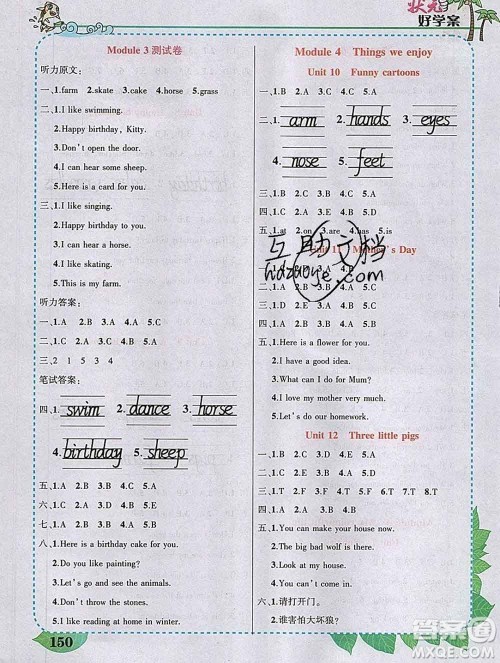 状元
好学案
Module 3 测试卷
听力原文:
一、1.farm 2.skate 3.cake 4.horse 5.grass
二、1.I like swimming.
2.Happy birthday, Kitty.
3.Don't open the door.
4.I can hear some sheep.
5.Here is a card for you.
三、1.I like singing.
2.Happy birthday to you.
3.I can hear a horse.
4.I like skating.
5.This is my farm.
听力答案:
一、1.A 2.B 3.A 4.B 5.A
二、1.A 2.B 3.A 4.B 5.B
三、2 1 5 3 4
笔试答案:
四、1.swim 2.dance 3.horse
4.birthday 5.sheep
五、1.C 2.B 3.A 4.A 5.B
六、1.C 2.A 3.D 4.E 5.B
七、1.A 2.B 3.A 4.B 5.A
八、1.Here is a birthday cake for you.
2.Do you like dancing?
3.Let's go and see the animals.
4.Don't throw the stones.
5.I like reading at home in winter.
150
Module 4 Things we enjoy
Unit 10 Funny cartoons
一、1.B 2.A 3.A 4.B 5.A
二、1.arm 2.hands 3.eyes
4.nose 5.feet
三、1.B 2.C 3.B 4.C 5.A
四、1.C 2.A 3.D 4.E 5.B
五、1.at 2.on 3.are 4.has 5.is
Unit 11 Mother's Day
三、1.C 2.D 3.B 4.E 5.A
四、1.A 2.B 3.A 4.B 5.B
五、1.Here is a flower for you.
2.I have a good idea.
3.What can I do for Mum?
4.I love my mother very much.
5.Let's do our homework.
Unit 12 Three little pigs
一、1.C 2.B 3.D 4.E 5.A
五、1.You can make your house now.
2.The big bad wolf is there.
3.I can see your house.
六、1.请打开门。
2.谁害怕大坏狼?
互助文档
hdzuoye.com
答案圈
MXQE.COM